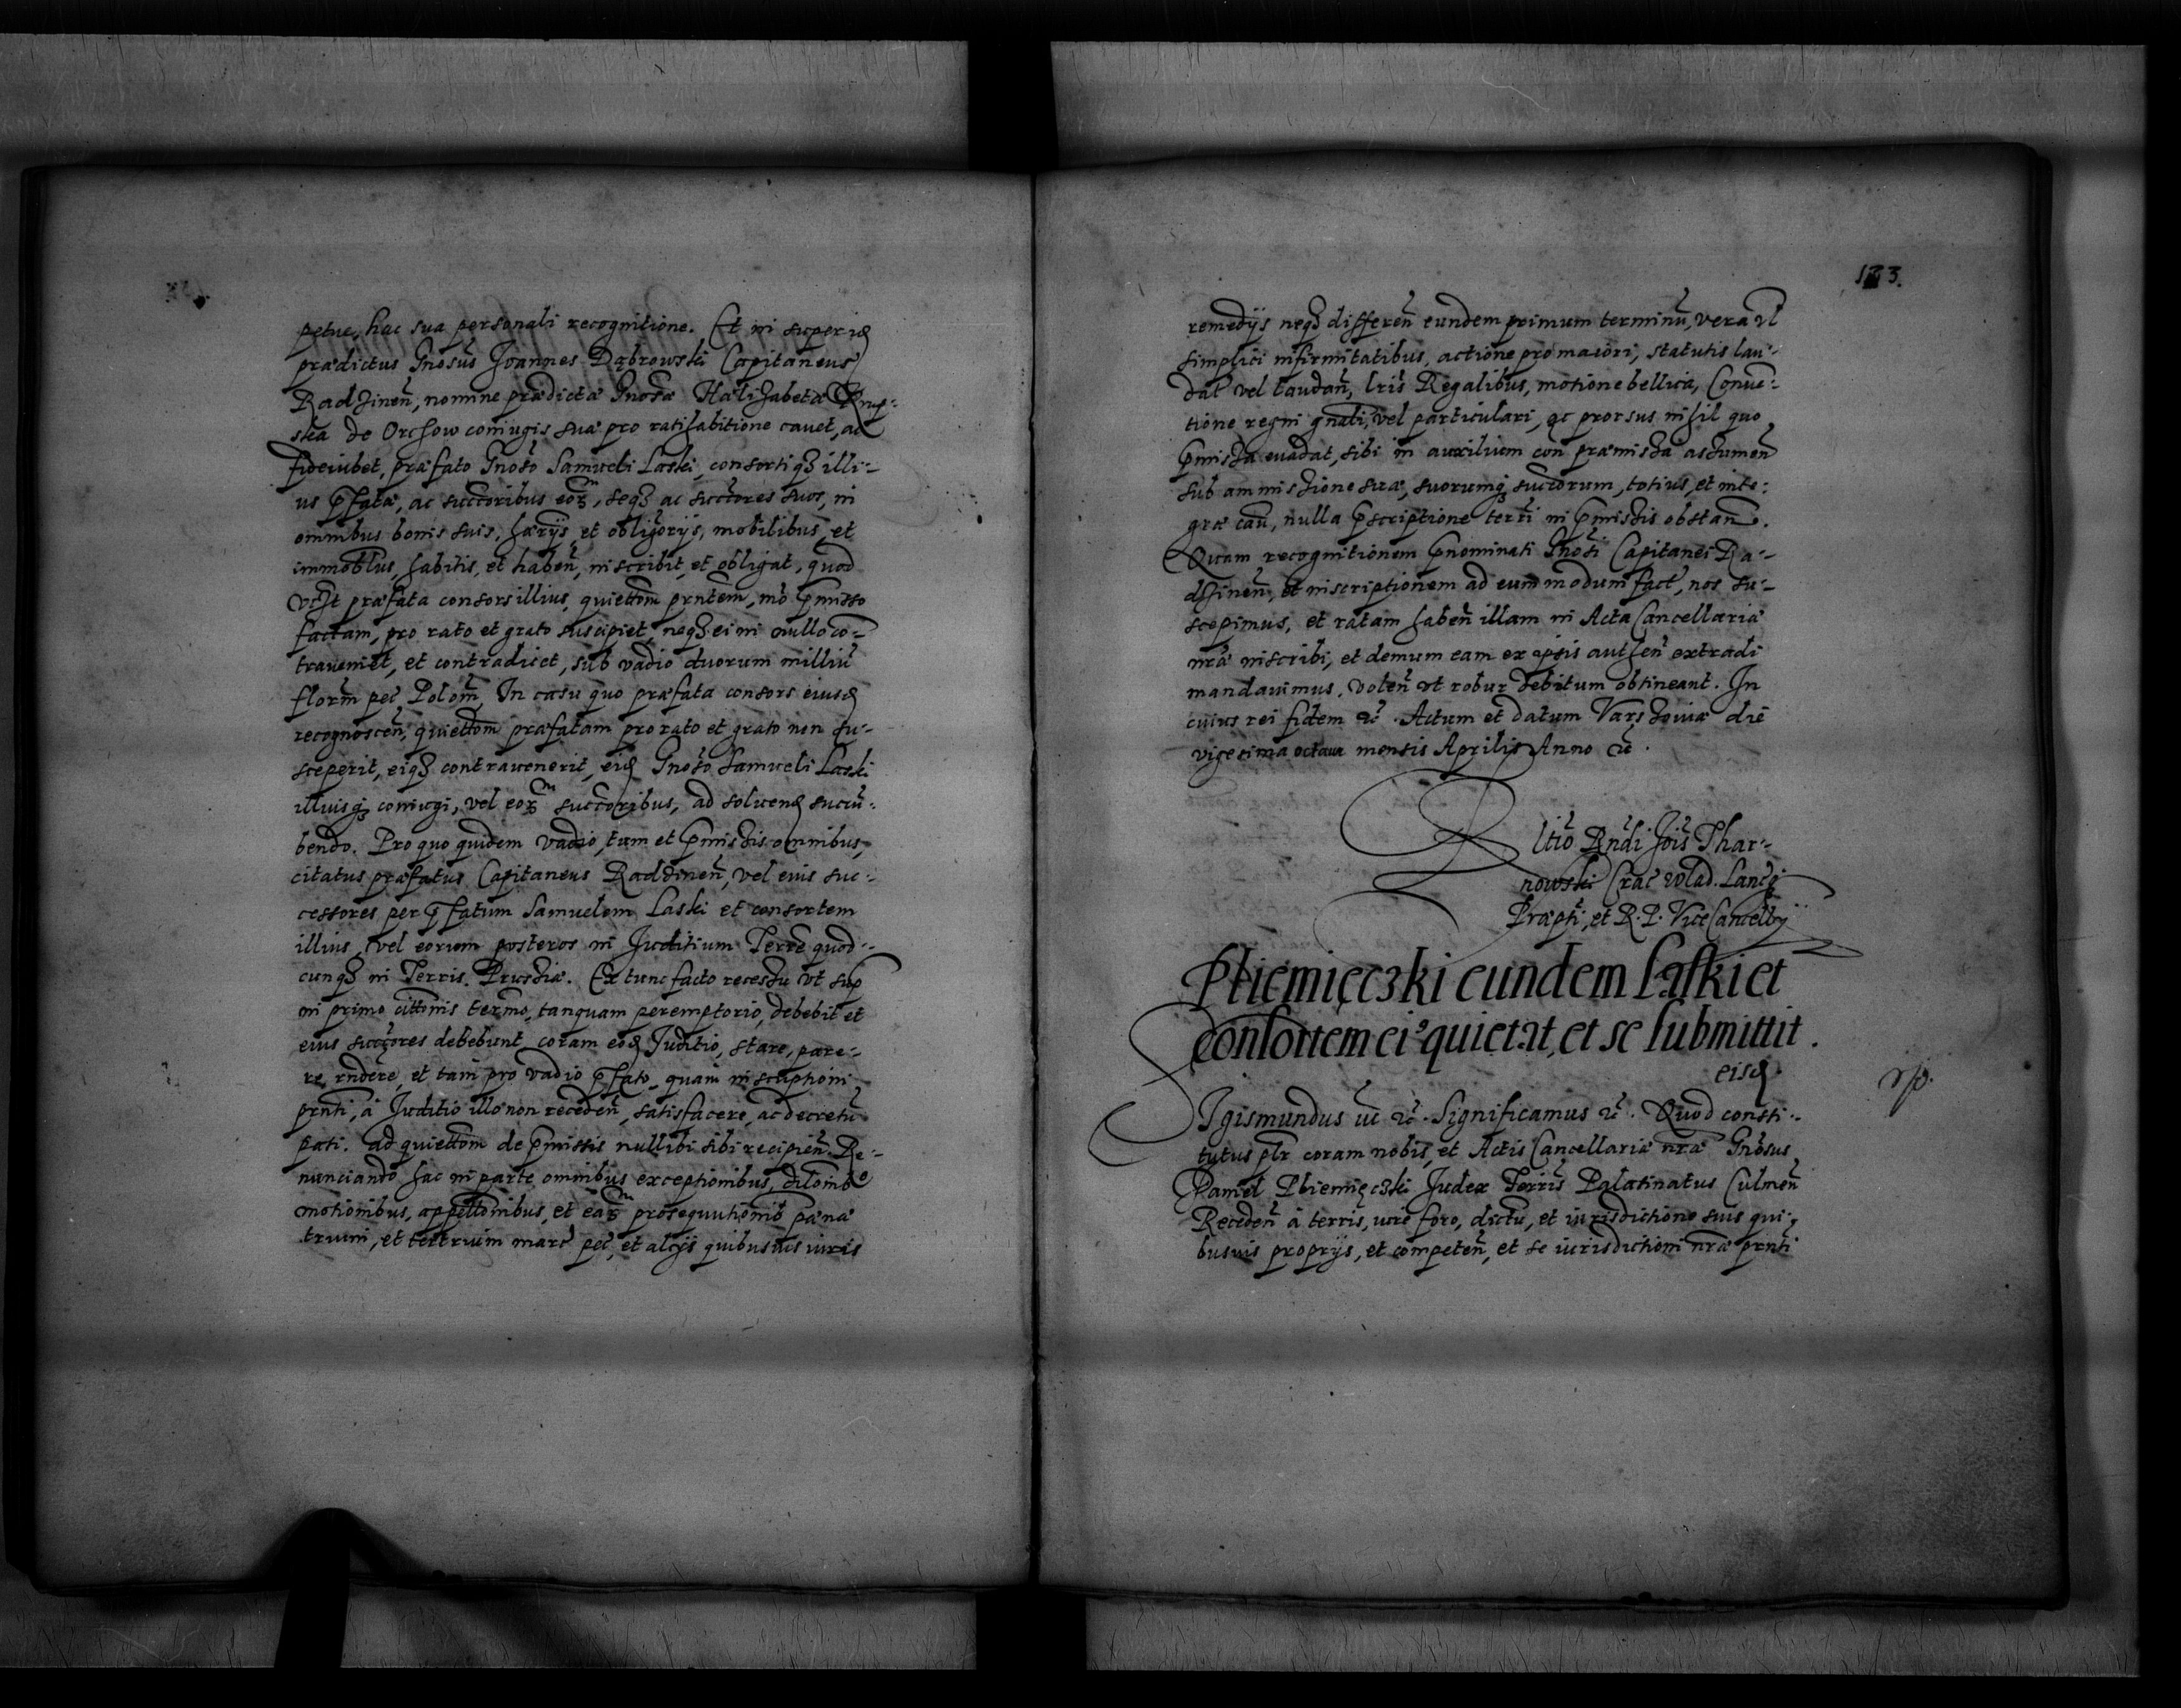 petue, hac sua personali recognitione. Et in super id
prædictus Gnosus Joannes Dąbrowski Capitaneus
Radzinen̄, nomine prædictæ Gnosæ Halizabetæ
ska de Orchow coniugis suæ pro ratihabitione cauet, ac
fideiubet, præfato Gnoso Samueli Laski, consortiqȝ illi-
us pfatæ, ac succoribus eoꝝ, seqȝ ac succores suos, in
omnibus bonis suis, hærijs, et obligorijs, mobilibus, et
immoblus, habitis, et haben̄, inscribit, et obligat, quod
præfata consors illius, quiettom prntem, mo pmisso
factam, pro rato et grato suscipiet, neqȝ ei in nullo co-
traueniet, et contradicet, sub vadio duorum milliū
florm pec Polom, In casu quo præfata consors eiusd
recognoscen̄, quiettom præfatam pro rato et grato non su-
sceperit, eiqȝ contrauenerit, eid Gnoso Samueli Laski
illiusqȝ coniugi, vel eoꝝ succoribus, ad soluend succū-
bendo. Pro quo quidem vadio, tum et pmissis omnibus,
citatus præfatus Capitaneus Radzinen̄, vel eius suc-
cessores per pfatum Samuelem Laski et consortem
illius, vel eorum posteros in Juditium Terre quod-
cunqȝ in Terris Prussiæ. Ex tunc facto recessu vt sup
in primo cittonis termo, tanquam peremptorio, debebit et
eius succores debebunt coram eod Juditio, stare, pare-
re, rndere, et tam pro vadio pfato, quam inscriptioni
prnti, à Juditio illo non receden̄, satisfacere, ac decretū
pati. ad quiettom de pmissis nullibi sibi recipien̄. Re-
nunciando hac in parte omnibus exceptionibus, dilonib
motionibus, appettonibus, et eaꝝ prosequutionib pæna
trium, et tertrium marc pec, et alijs quibusuis iuris
183.
remedijs neqȝ differen̄ eundem primum terminū, vera vl
simplici infirmitatibus, actione pro maiori, statutis lau-
dat vel laudan̄, lris Regalibus, motione bellica, Conue-
tione regni gnali, vel particulari, ac prorsus nihil quo
pmissa euadat, sibi in auxilium con præmissa assumen̄
sub ammissione suæ, suorumqȝ succorum, totius, et inte-
græ cau, nulla pscriptione terri in pmissis obstan̄.
Quam recognitionem pnominati Gnosi Capitanei Ra-
dzinen̄, et inscriptionem ad eum modum fact, nos su-
scepimus, et ratam haben̄ illam in Acta Cancellariæ
nræ inscribi, et demum eam ex ipsis authen̄ extradi
mandauimus, volen̄ vt robur debitum obtineant. In
cuius rei fidem etc. Actum et datum Varssouiæ die
vigesima octaua mensis Aprilis Anno etc.
Rltio Rndi Jois Thar-
nowski Crac wlad. Lancz
Præpti, et R. P. ViceCancellrij
Pliemięczki eundem Laski et
consortem ei9 quietat, et se submittit
eisd
Sigismundus etc. Significamus etc. Quod consti-
tutus plr coram nobis, et Actis Cancellariæ nræ Gnosus
Daniel Pliemięczki Judex Terris Palatinatus Culmen̄
Receden̄ à terris, iure foro, dictu, et iurisdictione suis qui-
busuis proprijs, et competen̄, et se iurisdictioni nræ prnti